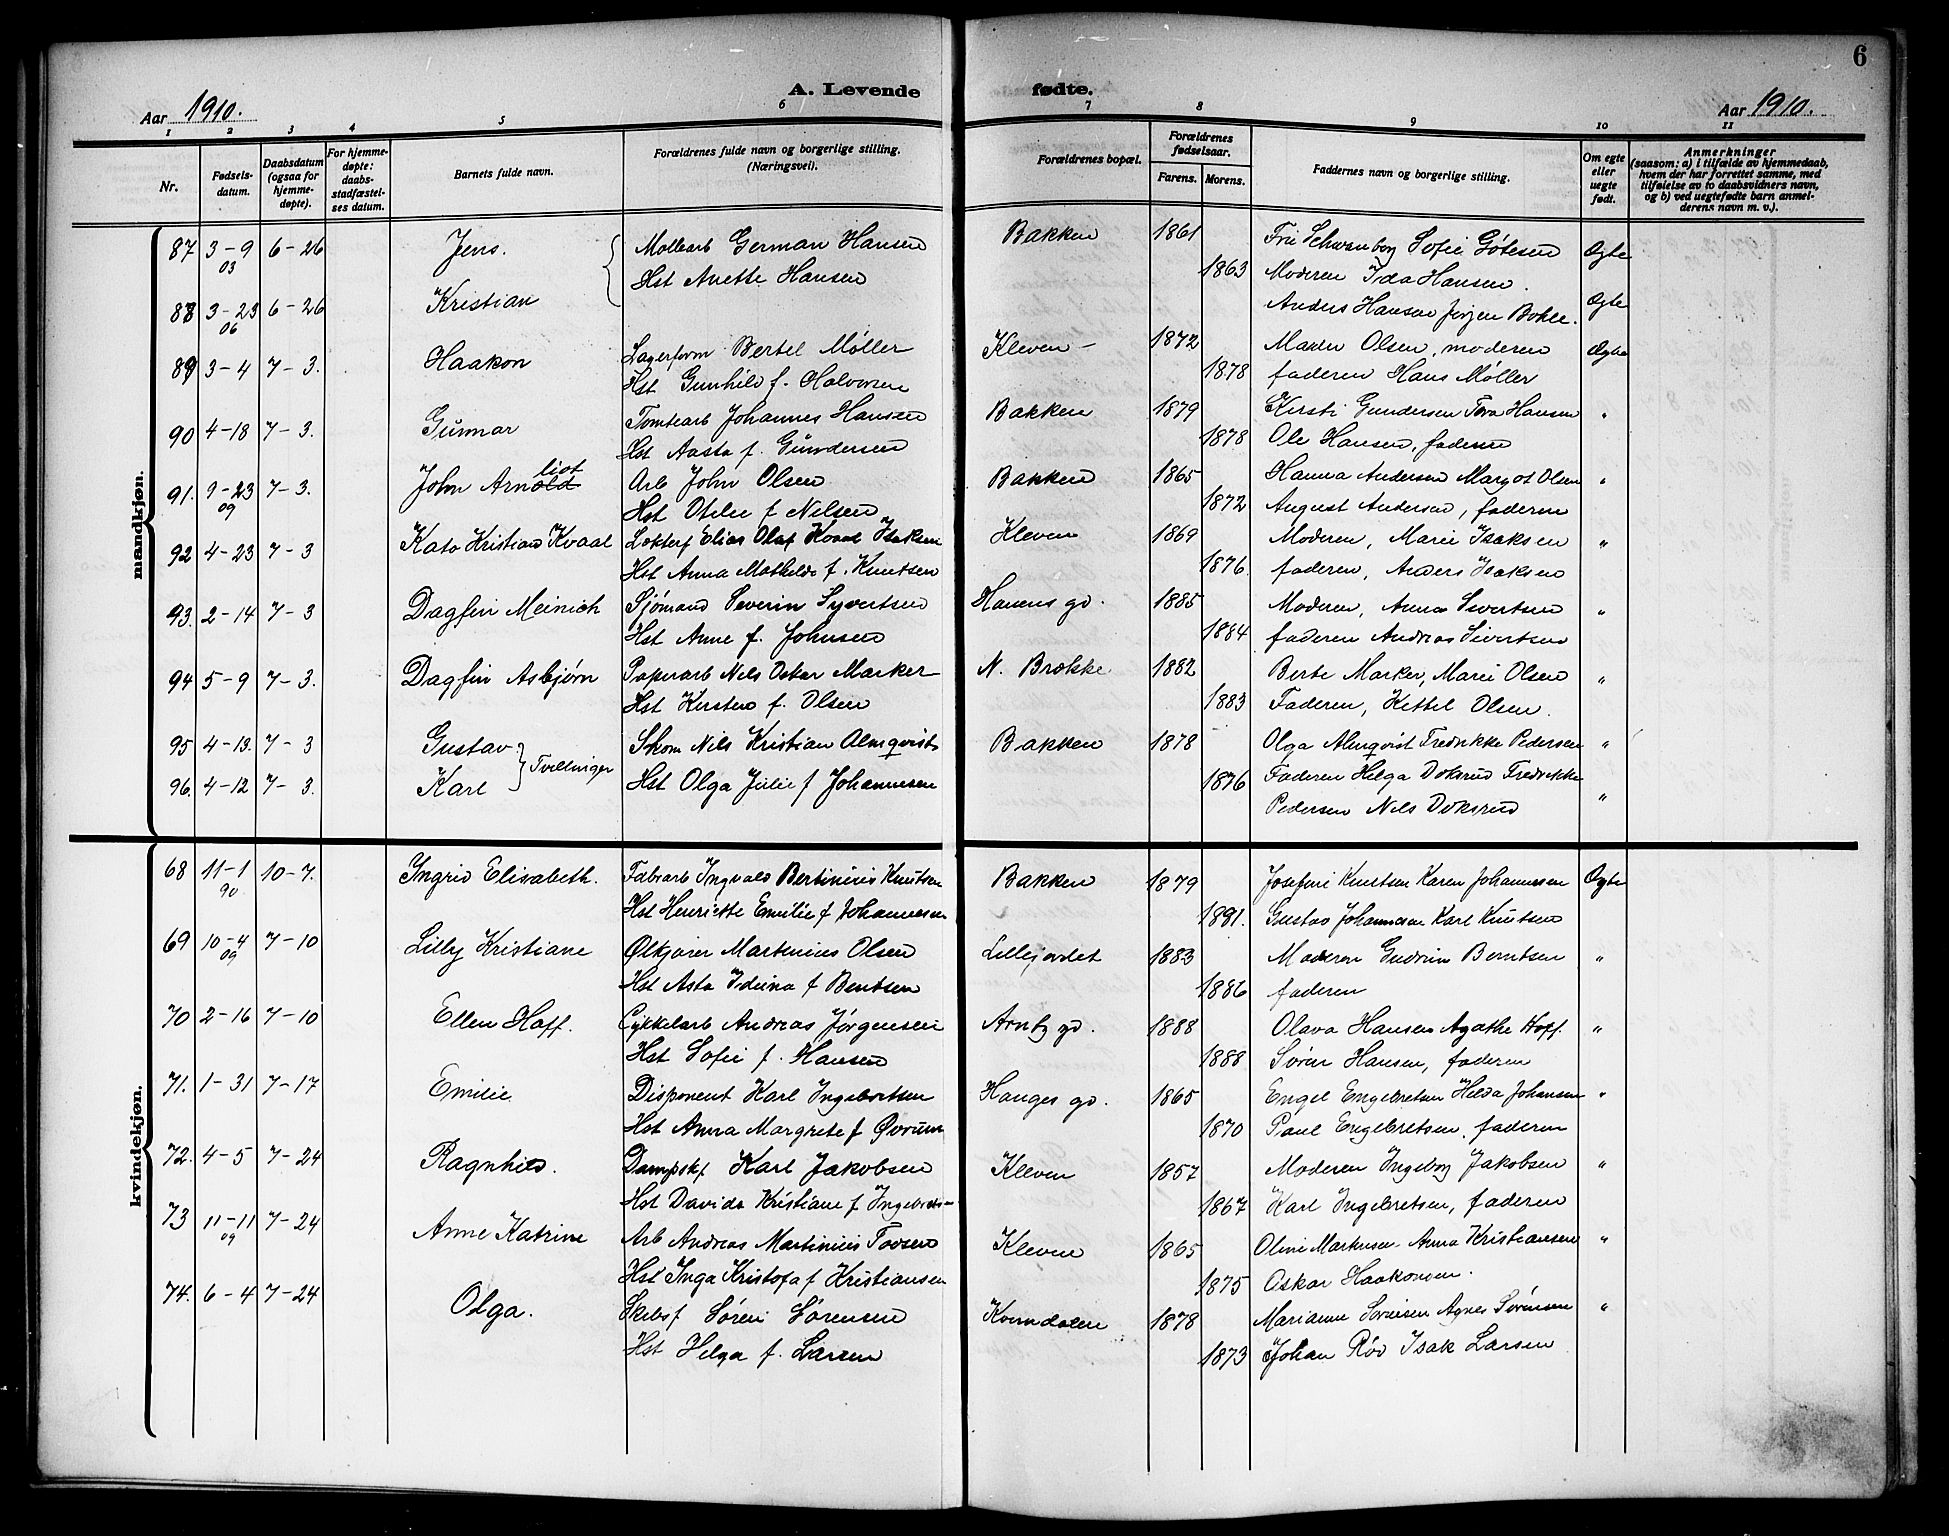 6
A. Levende fødte.
Aar 1910.
Aar 1910.
1 2 3 4 5 6 7 8 9 10 11
Nr.
Fødsels-
datum.
Daabsdatum
(ogsaa for
hjemme-
døpte).
For hjemme-
døpte:
daabs-
stadfæstel-
ses datum.
Barnets fulde navn.
Forældrenes fulde navn og borgerlige stilling.
(Næringsvei).
Forældrenes bopæl.
Forældrenes
fødselsaar.
Farens. Morens.
Faddernes navn og borgerlige stilling.
Om egte
eller
uegte
født.
Anmerkninger
(saasom: a) i tilfælde av hjemmedaab,
hvem der har forrettet samme, med
tilføielse av to daabsvidners navn,
og b) ved uegtefødte barn anmel-
derens navn m. v.).
mandkjøn.
87 3-9 03 6-26 Jens. German Hansen Bakken 1861 Sofie Gøtesen Ægte
Hst Anette Hansen 1863 Moderen Ida Hansen.
88 3-23 06 6-26 Kristian Anders Hansen Ægte
89 3-4 7-3. Haakon Lagerform Bertel Møller Kleven 1872 Olsen, moderen Ægte
Hst Gunhild f. Halvorsen 1878 faderen Hans Møller
90 4-18 7-3. Gunnar Tomtearb Johannes Hansen Bakken 1879 Kirsti Gundersen Tora Hansen "
Hst Aasta f. Gundersen 1878 Ole Hansen, faderen
91. 9-23 09 7-3. John Arnold liot Arb John Olsen Bakken 1865 Hanna Andersen Margot Olsen "
Hst Otelie f Nilsen 1872 August Andersen, faderen
92 4-23 7-3 Kato Kristian Kvaal Elias Olaf Kvaal Isaksen Kleven 1869 Moderen, Marie Isaksen "
Hst Anna Mathilde f. Knutsen 1876. faderen, Anders Isaksen
93. 2-14 7-3 Dagfin Meinich Sjømand Severin Syvertsen gd. 1885 Moderen, Anna Sivertsen "
Hst Anne f. Johnsen 1884 faderen Andreas Sivertsen
94 5-9 7-3. Dagfin Asbjørn Papirarb Nils Oskar Marker N. Brække 1882 Berte Marker, Marie Olsen "
Hst Kirsten f. Olsen 1883 Faderen, Kittel Olsen.
95 4-13. 7-3 Gustav Skom Nils Kristian Almqvist Bakken 1878 Olga Almqvist Fredrikke Pedersen "
Tvillinger
96. 4-12 7-3. Karl Hst Olga Julie f Johannesen 1876 Faderen Helga Doksrud Fredrikke
Pedersen Nils Doksrud "
kvindekjøn.
68 11-1 90 10-7. Ingrid Elisabeth. Fabrarb Ingvald Bertinius Knutsen Bakken 1879 Josefine Knutsen Karen Johannessen Ægte
Hst Henriette Emilie f Johannesen 1881. Gustav Johannesen Karl Knutsen
69 10-4 09 7-10 Lilly Kristiane Ølkjører Martinius Olsen Lillejordet 1883 Moderen Gudrun Berntsen "
Hst Asta Idina f Bentsen 1886 faderen
70 2-16 7-10 Ellen Hoff. Cykkelarb Andreas Jørgensen Arnby gd. 1888 Olava Hansen Agathe Hoff. "
Hst Sofie f. Hansen 1888 Søren Hansen, faderen
71. 1-31 7-17 Emilie Disponent Karl Ingebretsen Hauges gd. 1865 Engel Engebretsen Helda Johansen "
Hst Anna Margrete f Øvrum 1870 Paul Engebretsen. faderen
72. 4-5 7-24 Ragnhild. Dampskf Karl Jakobsen Kleven 1857 Moderen Ingeborg Jakobsen "
Hst Davida Kristiane f Ingebrets- 1867 Karl Ingebretsen, faderen
73 11-11 09 7-24 Anne Katrine Arb Andreas Martinius Kleven 1865 Oline Markusen Anna Kristiansen "
Hst Inga Kristofa f Kristiansen 1875 Oskar Haakonsen.
74. 6-4 7-24 Olga. Skibsf Søren Sørensen 1878 Marianne Sørensen Agnes Sørensen "
Hst Helga f. Larsen 1873 Johan Røv Isak Larsen